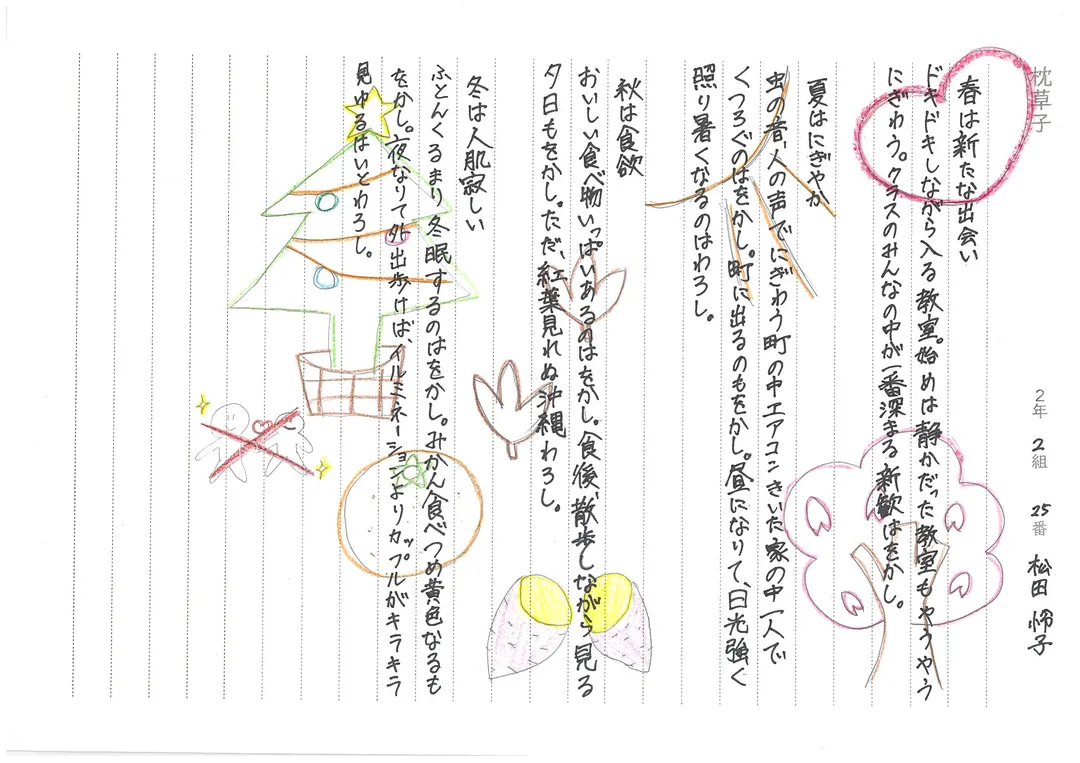 枕草子
2年 2組 25番 松田 怜子
春は新たな出会い
ドキドキしながら入る教室。始めは静かだった教室もやうやう
にぎわう。クラスのみんなの中が一番深まる新歓はをかし。
夏はにぎやか
虫の音、人の声でにぎわう町の中エアコンきいた家の中一人で
くつろぐのはをかし。町に出るのもをかし。昼になりて、日光強く
照り暑くなるのはわろし。
秋は食欲
おいしい食べ物いっぱいあるのはをかし。食後、散歩しながら見る
夕日もをかし。ただ、紅葉見れぬ沖縄わろし。
冬は人肌寂しい
ふとんくるまり冬眠するのはをかし。みかん食べつめ黄色なるも
をかし。夜なりて外出歩けば、イルミネーションよりカップルがキラキラ
見ゆるはいとわろし。